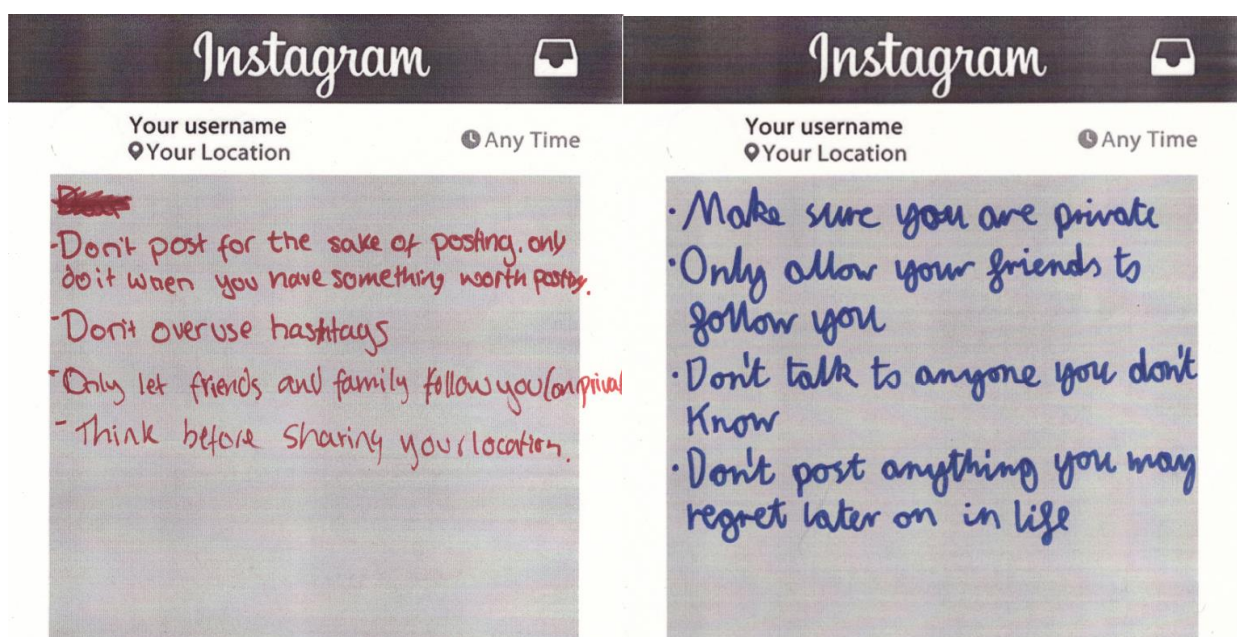 Instagram
Your username
Your Location
Any Time
-Don't post for the sake of posting. only
do it when you have something worth posting.
-Don't overuse hashtags
-Only let friends and family follow you (on privat
-Think before sharing your location.
Instagram
Your username
Your Location
Any Time
·Make sure you are private
·Only allow your friends to
follow you
·Don't talk to anyone you don't
Know
·Don't post anything you may
regret later on in life